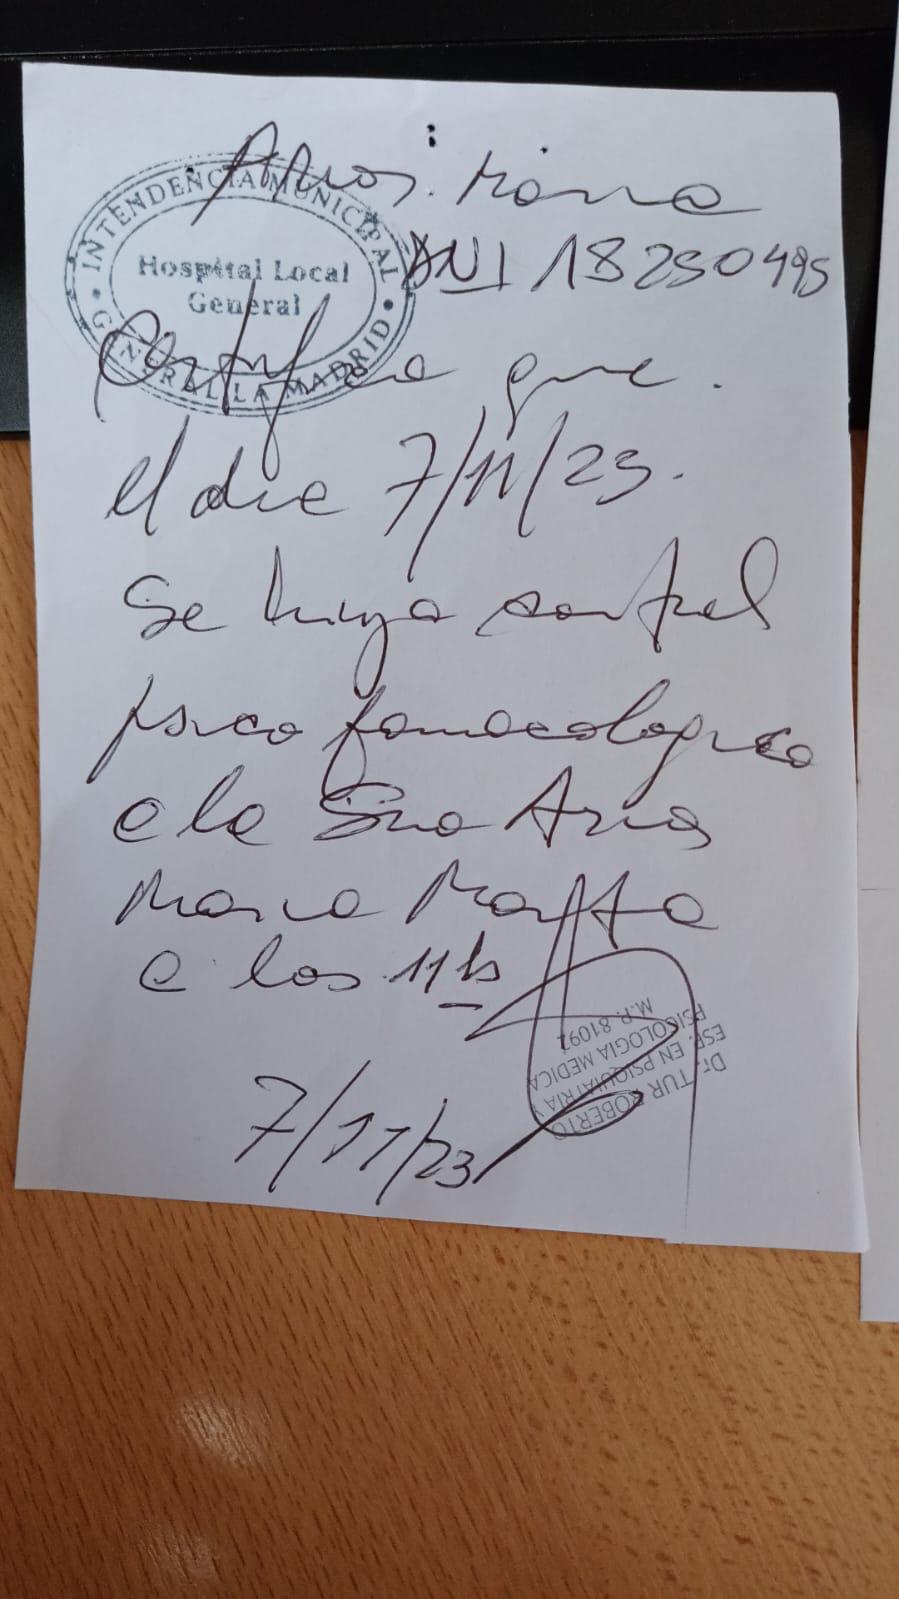 Arias. Maria
INTENDENCIA MUNICIPAL
Hospital Local
General
GENERAL LA MADRID
DNI 18250495
Certifico que.
el dia 7/11/23.
Se hizo control
psico farmacologico
a la Sra Arias
Maria Marta
a las 11 hs
Dr. TUR ROBERTO
ESP. EN PSIQUIATRIA Y
PSICOLOGIA MEDICA
M.P. 81092
7/11/23